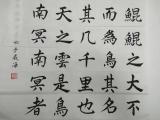 鯤之大不
而為鳥其名
其几千里也
天之雲是鳥
南冥南冥者